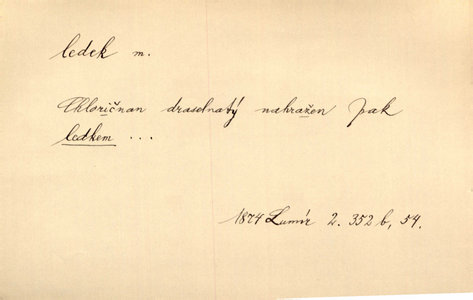 ledek m.
Chloričnan draselnatý nahražen pak
ledkem ...
1874 Lumír 2. 352 b, 54.